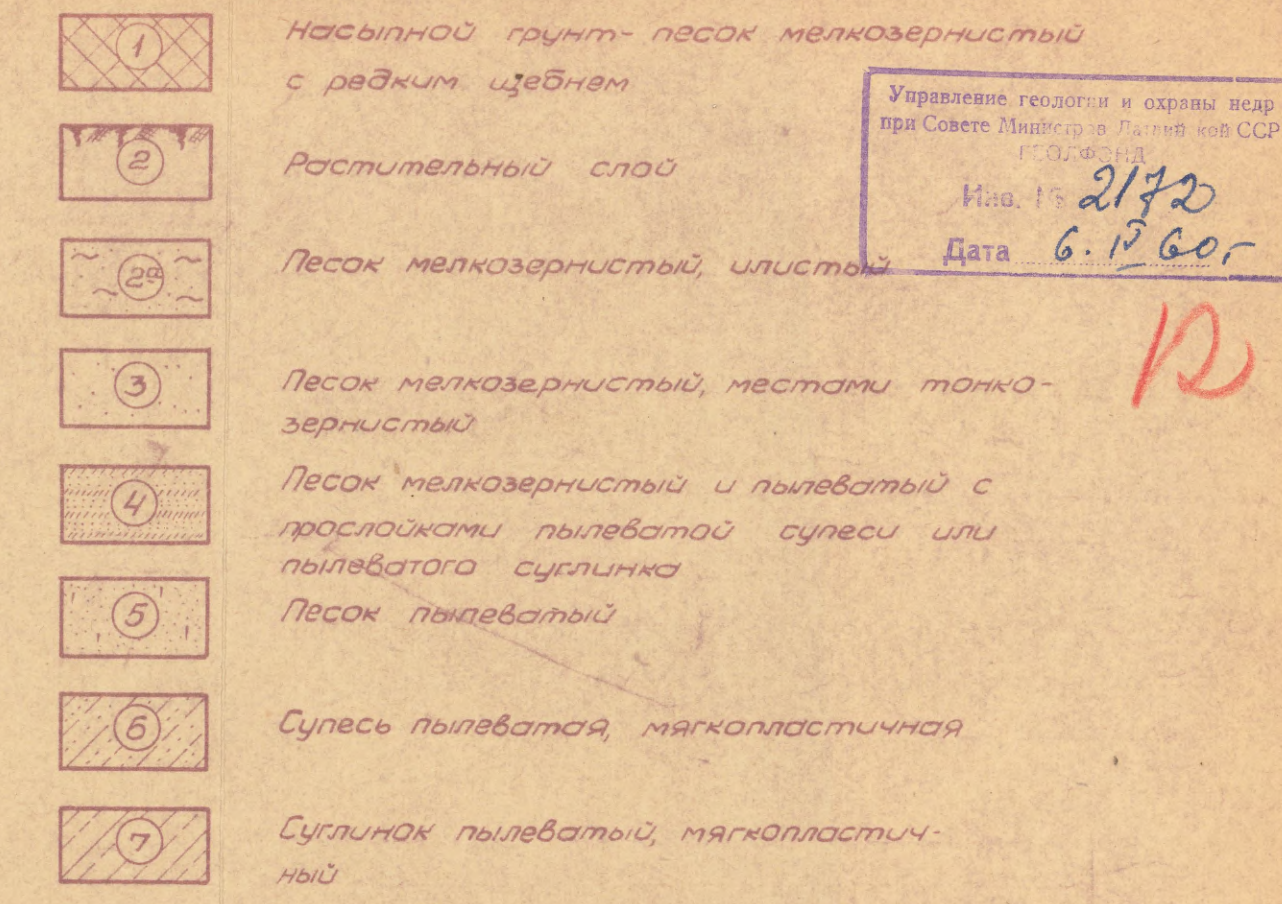 1
Насыпной грунт- песок мелкозернистый
с редким щебнем
Управление геологии и охраны недр
при Совете Министров Латвийской ССР
ГЕОЛФОНД
Инв. № 2172
Дата 6. IV 60 г
2
Растительный слой
2а
Песок мелкозернистый, илистый
3
Песок мелкозернистый, местами тонко-
зернистый
4
Песок мелкозернистый и пылеватый с
прослойками пылеватой супеси или
пылеватого суглинка
5
Песок пылеватый
6
Супесь пылеватая, мягкопластичная
7
Суглинок пылеватый, мягкопластич-
ный